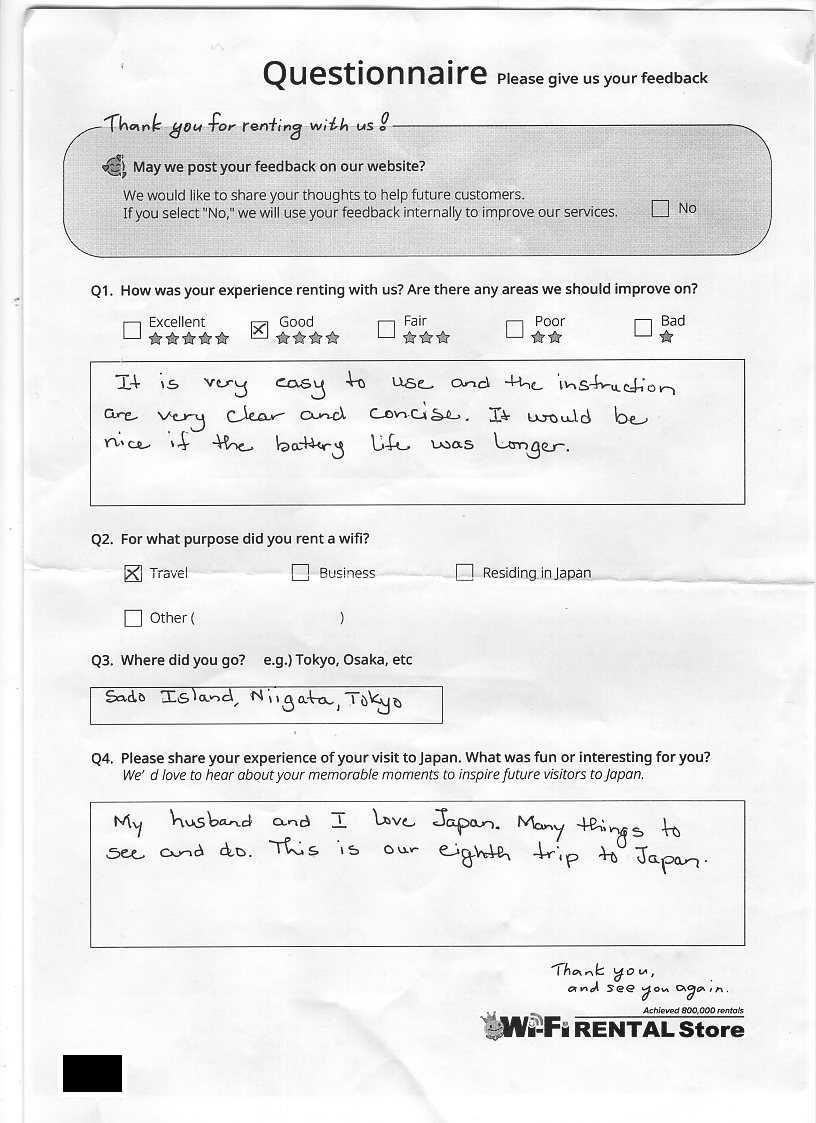 Questionnaire Please give us your feedback
Thank you for renting with us!
May we post your feedback on our website?
We would like to share your thoughts to help future customers.
If you select "No," we will use your feedback internally to improve our services.
No
Q1. How was your experience renting with us? Are there any areas we should improve on?
Excellent Good Fair Poor Bad
It is very easy to use and the instruction
are very clear and concise. It would be
nice if the battery life was longer.
Q2. For what purpose did you rent a wifi?
Travel Business Residing in Japan
Other ( )
Q3. Where did you go? e.g.) Tokyo, Osaka, etc
Sado Island, Niigata, Tokyo
Q4. Please share your experience of your visit to Japan. What was fun or interesting for you?
We' d love to hear about your memorable moments to inspire future visitors to Japan.
My husband and I love Japan. Many things to
see and do. This is our eighth trip to Japan.
Thank you,
and see you again.
Achieved 800,000 rentals
Wi-Fi RENTAL Store